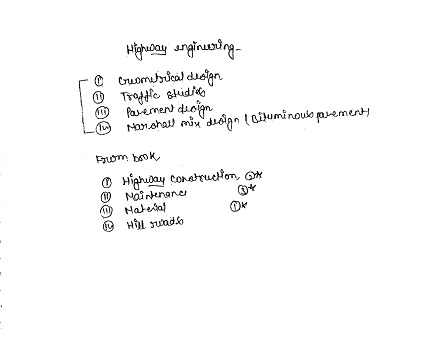 Highway engineering -
(i) Geometrical design
(ii) Traffic studies
(iii) Pavement design
(iv) Marshall mix design (Bituminous pavement)
From book
(i) Highway construction (2)*
(ii) Maintenance (3)*
(iii) Material (1)*
(iv) Hill roads